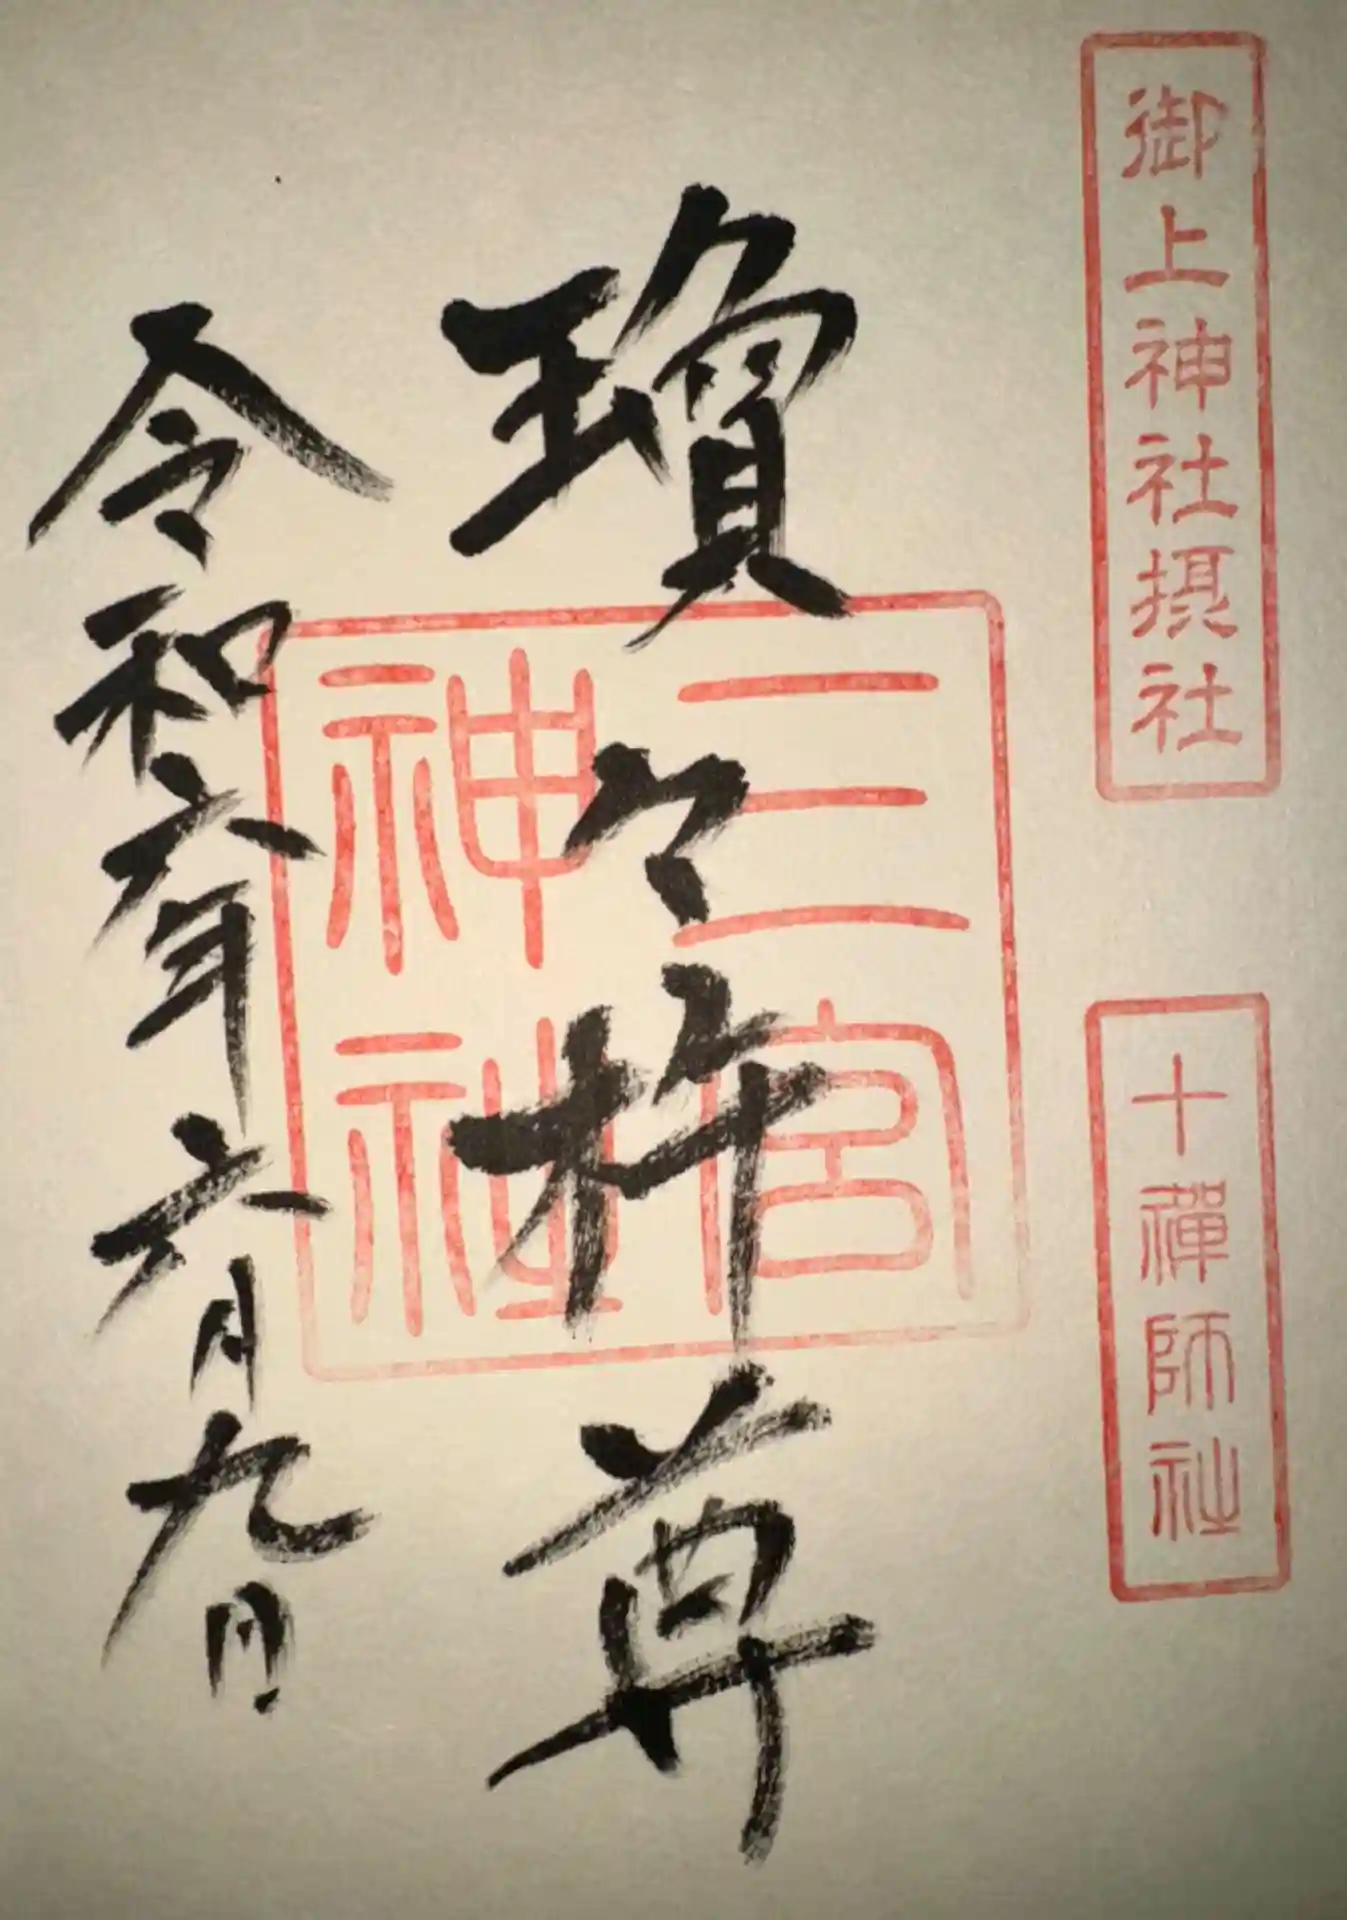 御上神社摂社
十禅師社
三宮神社
瓊々杵尊
令和六年六月九日